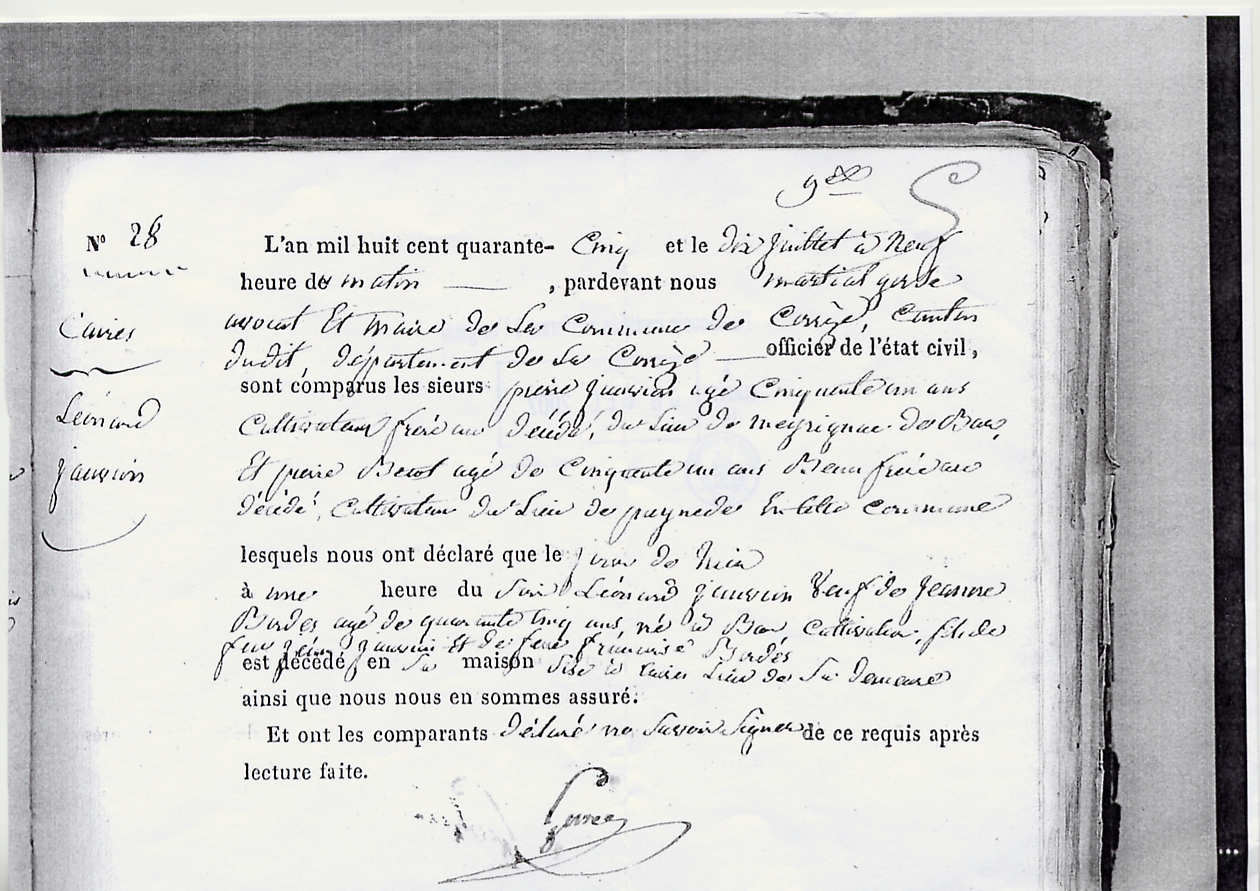 9el
N° 28
Caires
Léonard
jauvion
L'an mil huit cent quarante- Cinq et le dix juillet à Neuf
heure de matin , pardevant nous martial
avocat Et maire de La Commune de Corrèze, Canton
dudit, département de La Corrèze officier de l'état civil,
sont comparus les sieurs pierre jauvion agé Cinquante un ans
Cultivateur frère au décédé, du Lieu de meyrignac de Bar,
Et pierre agé de Cinquante un ans Beau frère au
décédé, Cultivateur du Lieu de En cette Commune
lesquels nous ont déclaré que le jour de hier
à une heure du soir Léonard jauvion Veuf de Jeanne
Bordes agé de quarante cinq ans, né à Bar Cultivateur, fils de
feu jauvion Et de feue françoise Bordes
est décédé en Sa maison Sise à Caires Lieu de Sa demeure
ainsi que nous nous en sommes assuré.
Et ont les comparants déclaré ne Savoir Signer de ce requis après
lecture faite.